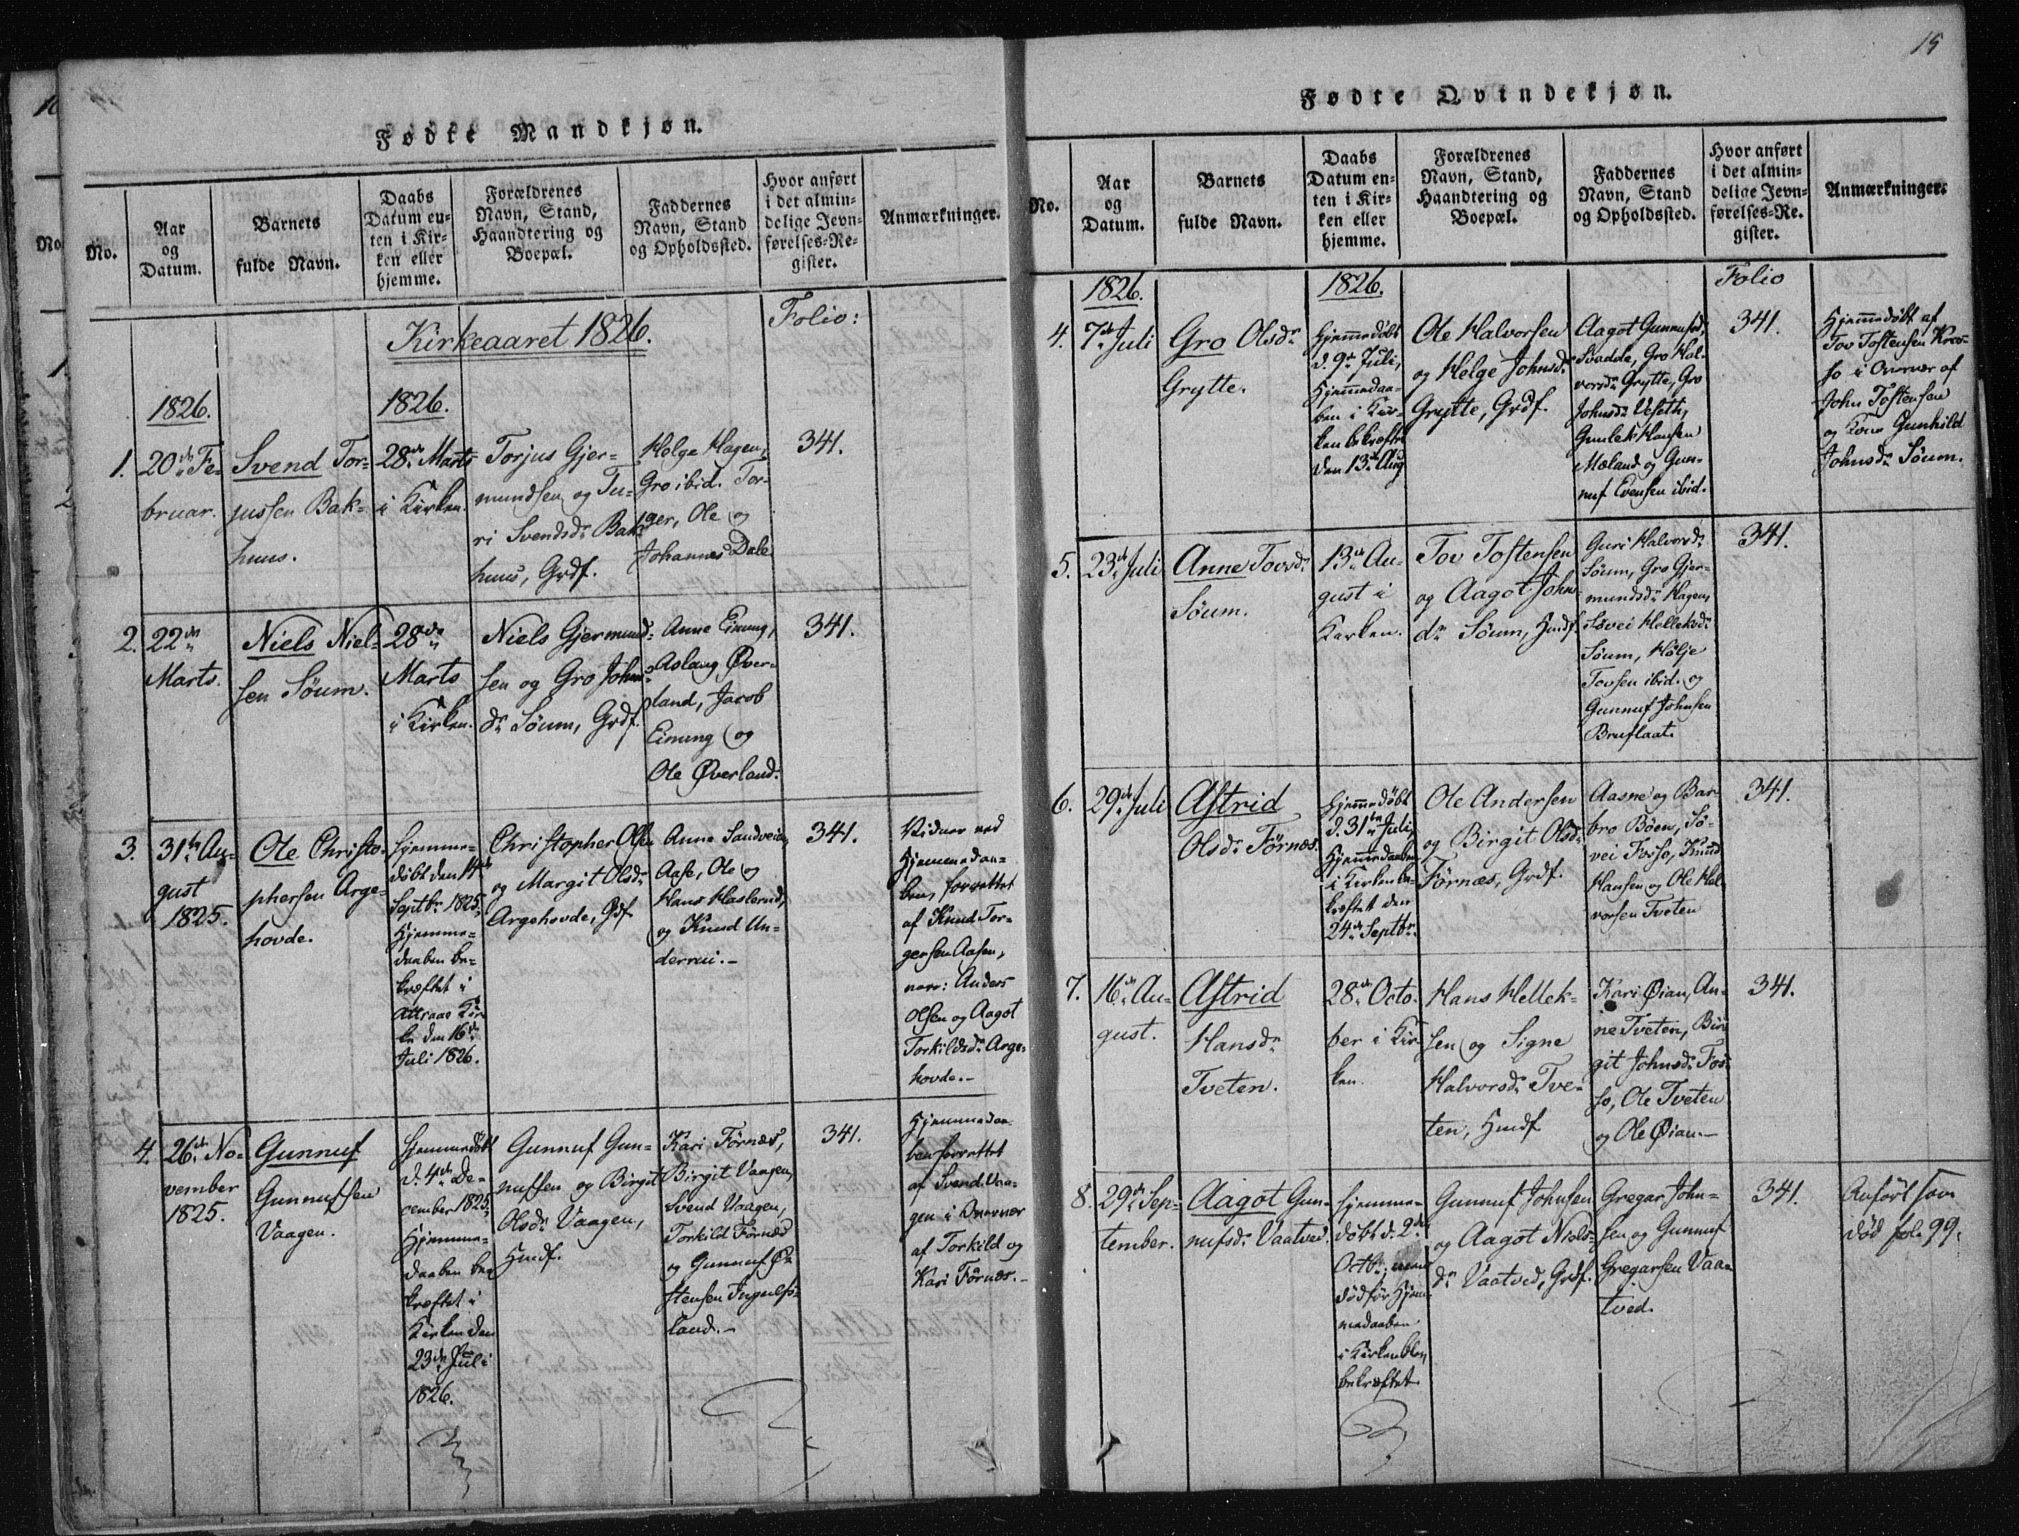 Fødte Mandkjøn.
No.
Aar
og
Datum.
Barnets
fulde Navn.
Daabs
Datum en-
ten i Kir-
ken eller
hjemme.
Forældrenes
Navn, Stand,
Haandtering og
Boepæl.
Faddernes
Navn, Stand
og Opholdssted.
Hvor anført
i det almin-
delige Jevn-
førelses-Re-
gister.
Anmærkninger.
Kirkeaaret 1826.
Folio:
1826.
1826.
1.
20de Fe-
bruar.
Svend Tor-
jussen Bak-
huus.
28de Marts
i Kirken.
Torjus Gjer-
mundsen og Tu-
ri Svendsdr Bak-
huus, Grdf.
Helge Hagen,
Gro ibid. Tor-
ger, Ole og
Johannes Dale
341.
2.
22de
Marts.
Niels Niel-
sen Söum.
28de
Marts
i Kirken.
Niels Gjermund-
sen og Gro Johns-
dr Söum, Grdf.
Anne Einung,
Aslaug Øver-
land, Jacob
Einung og
Ole Øverland.
341.
3.
31te Au-
gust
1825.
Ole Christo-
phersen Arge-
hovde.
Hjemme-
döbt den 14de
Septbr 1825.
Hjemme-
daaben be-
kræftet i
Attraae Kir-
ke den 16de
Juli 1826.
Christopher Olsen
og Margit Olsdr
Argehovde, Grdf.
Anne Sandveien,
Aase, Ole og
Hans Haslerud,
og Knud Un-
derrui.-
341.
Vidner ved
Hjemmedaa-
ben, forrettet
af Knud Tor-
gersen Aasen,
vare: Anders
Olsen og Aagot
Torkildsdr Arge-
hovde.-
4.
26de No-
vember
1825.
Gunnuf
Gunnufsen
Vaagen.
Hjemmedöbt
d. 4de De-
cember 1825.
Hjemme-
daaben be-
kræftet i
Kirken den
23de Juli
1826.
Gunnuf Gun-
nufsen og Birgit
Olsdr Vaagen,
Hmdf.
Kari Förnæs,
Birgit Vaagen,
Svend Vaagen,
Torkild Förnæs
og Gunnuf Öi-
stensen Ingulfs-
land.-
341.
Hjemmedaa-
ben forrettet
af Svend Vaa-
gen i Overvær
af Torkild og
Kari Förnæs.-
15
Fødte Qvindekjøn.
No.
Aar
og
Datum.
Barnets
fulde Navn.
Daabs
Datum en-
ten i Kir-
ken eller
hjemme.
Forældrenes
Navn, Stand,
Haandtering og
Boepæl.
Faddernes
Navn, Stand
og Opholdssted.
Hvor anført
i det almin-
delige Jevn-
førelses-Re-
gister.
Anmærkninger.
1826.
1826.
Folio
4.
7de Juli
Gro Olsdr
Grytte.
Hjemmedöbt
d. 9de Juli,
Hjemmedaa-
ben i Kir-
ken bekræftet
den 13de Aug
Ole Halvorsen
og Helge Johnsdr
Grytte, Grdf.
Aagot Gunnufsdr
Svadde, Gro Hal-
vorsdr Grytte, Gro
Johnsdr Veseth,
Gunlek Hansen
Mæland og Gun-
nuf Evensen ibid.
341.
Hjemmedöbt af
Tov Tostensen Kros-
so i Overvær af
John Tostensen
og Kone Gunhild
Johnsdr Söum.
5.
23de Juli
Anne Tovsdr
Söum.
13de Au-
gust i
Kirken.
Tov Tostensen
og Aagot Johns-
dr Söum, Hmdf.
Guri Halvorsdr
Söum, Gro Gjer-
mundsdr Hagen,
Sövei Helleksdr
Söum, Hölje
Tovsen ibid. og
Gunnuf Johnsen
Bruflaat.
341.
6.
29de Juli
Astrid
Olsdr Förnæs.
Hjemmedöbt
d. 31te Juli,
Hjemmedaaben
i Kirken be-
kræftet den
24de Septbr.
Ole Andersen
og Birgit Olsdr
Förnæs, Grdf.
Aasne og Bar-
bro Böen, Sö-
vei Fosso, Knud
Hansen og Ole Hal-
vorsen Tveten
341.
7.
16de Au-
gust.
Astrid
Hansdr
Tveten.
28de Octo-
ber i Kir-
ken.
Hans Hellek-
sen og Signe
Halvorsdr Tve-
ten, Hmdf.
Kari Øian, An-
ne Tveten, Bir-
git Johnsdr Fos-
so, Ole Tveten
og Ole Øian.-
341.
8.
29de Sep-
tember.
Aagot Gun-
nufsdr Vaatved.
Hjemme-
döbt d. 2de
Octbr; men
död för Hjem-
medaaben
i Kirken blev
bekræftet.
Gunnuf Johnsen
og Aagot Niels-
dr Vaatved, Grdf.
Gregar John-
sen og Gunnuf
Gregarsen Vaa-
tved.
341.
Anfört som
död fol. 99.